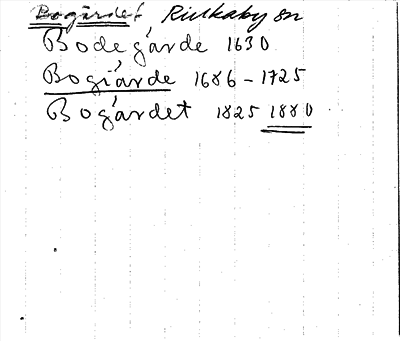 Bogärdet Kulkaby sn
Bodegårde 1630
Bogiårde 1686-1725
Bogårdet 1825 1880